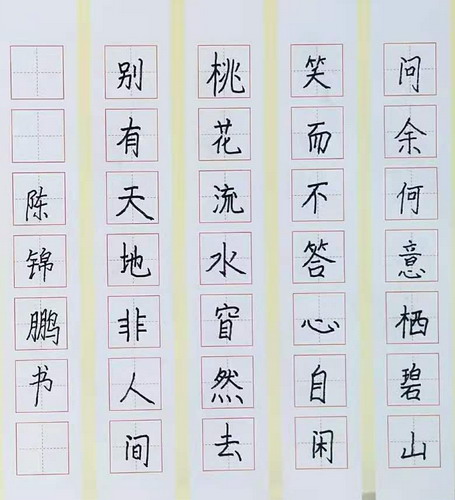 问余何意栖碧山
笑而不答心自闲
桃花流水窅然去
别有天地非人间
陈锦鹏书